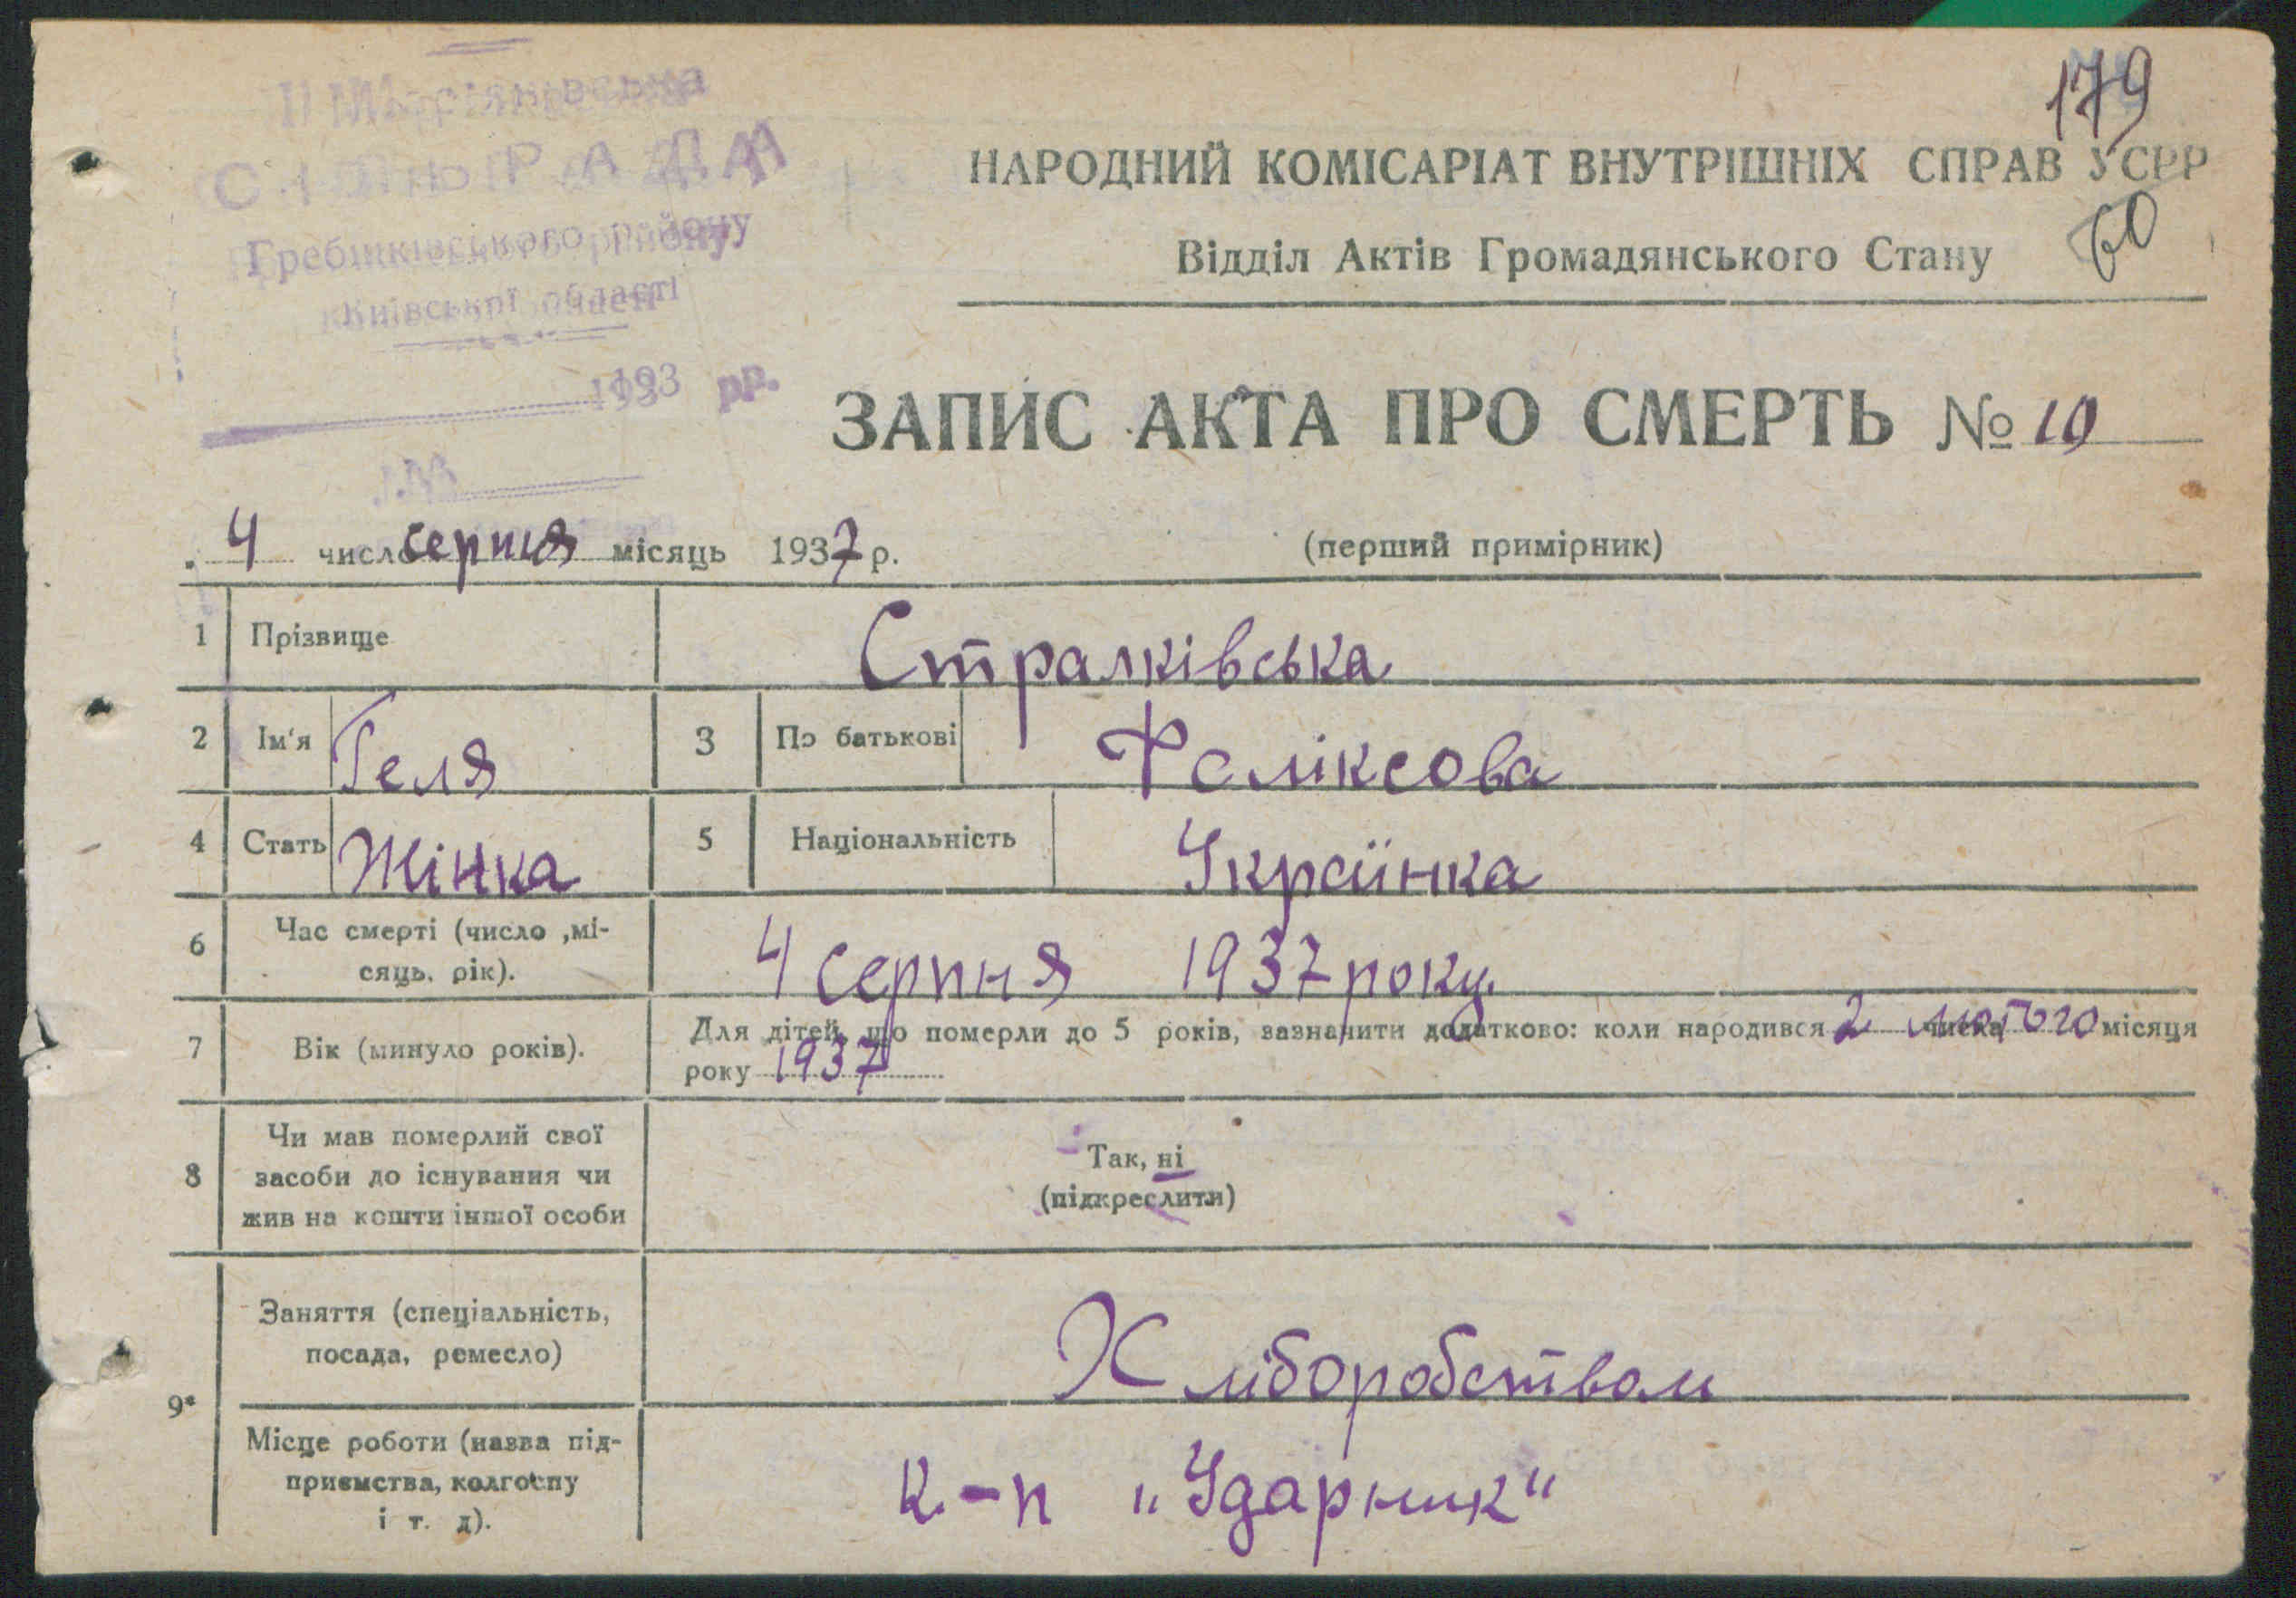 179
СІЛЬРАДА
Гребінківського району
Київської області
193 рр.
№
НАРОДНИЙ КОМІСАРІАТ ВНУТРІШНІХ СПРАВ УСРР
60
Відділ Актів Громадянського Стану
ЗАПИС АКТА ПРО СМЕРТЬ № 10
4 число серпня місяць 1937 р.
(перший примірник)
1 Прізвище Стралківська
2 Ім'я Геля 3 По батькові Феліксова
4 Стать Жінка 5 Національність Українка
6 Час смерті (число ,мі-
сяць. рік).
4 серпня 1937 року.
7 Вік (минуло років).
Для дітей, що померли до 5 років, зазначити додатково: коли народився 2 числа лютого місяця
року 1937
8 Чи мав померлий свої
засоби до існування чи
жив на кошти іншої особи
Так, ні
(підкреслити)
9
Заняття (спеціальність,
посада, ремесло)
Хліборобством
Місце роботи (назва під-
приємства, колгоспу
і т. д).
к-п "Ударник"